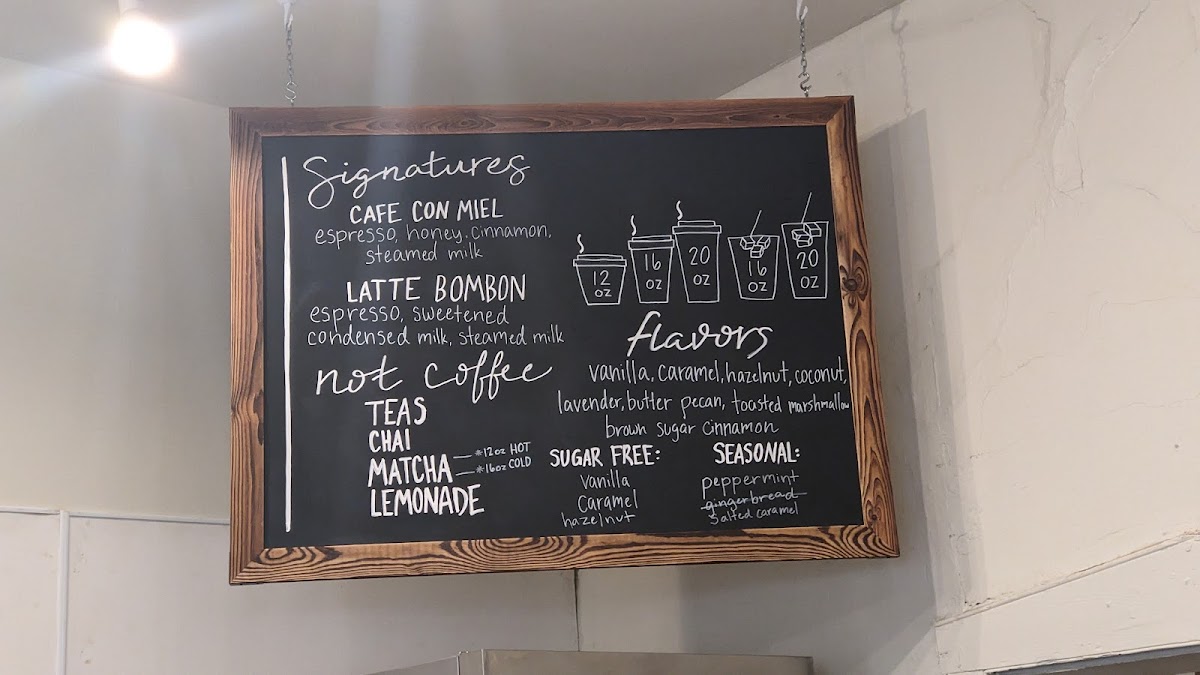 Signatures
CAFE CON MIEL
espresso, honey, cinnamon,
steamed milk
LATTE BOMBON
espresso, sweetened
condensed milk, steamed milk
not coffee
TEAS
CHAI
MATCHA
*12oz HOT
*16oz COLD
LEMONADE
12 oz
16 oz
20 oz
16 oz
20 oz
flavors
vanilla, caramel, hazelnut, coconut,
lavender, butter pecan, toasted marshmallow
brown sugar cinnamon
SUGAR FREE:
vanilla
caramel
hazelnut
SEASONAL:
peppermint
gingerbread
salted caramel